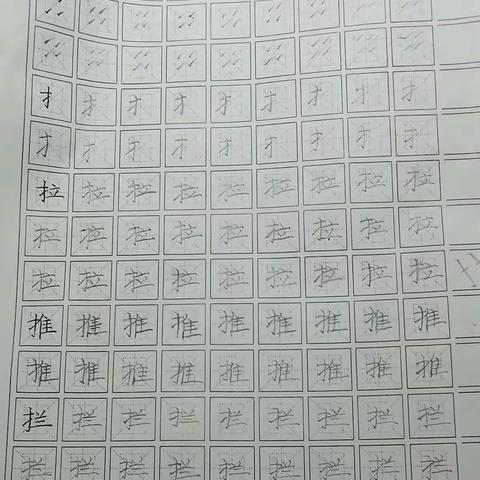 扌扌扌扌扌扌扌扌扌
扌扌扌扌扌扌扌扌扌
拉拉拉拉拉拉拉拉拉
拉拉拉拉拉拉拉拉拉
拉拉拉拉拉拉拉拉拉
推推推推推推推推推
推推推推推推推推推
拦拦拦拦拦拦拦拦拦
拦拦拦拦拦拦拦拦拦